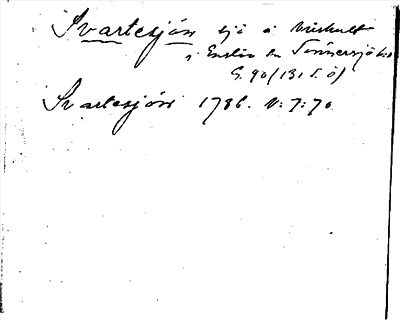 Svartesjön sjö å
i Enslöv sn Tönnersjö hd
G. 90 (131 S.Ö)
Svartesjön 1786. N:7:70